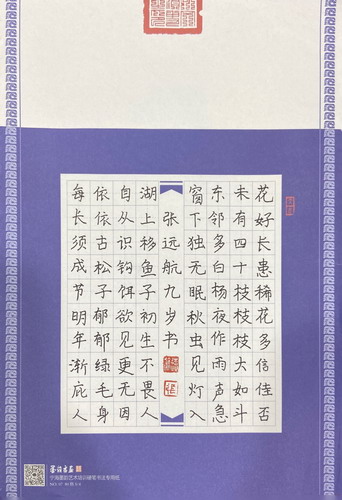 花好长患稀花多信佳否
未有四十枝枝枝大如斗
东邻多白杨夜作雨声急
窗下独无眠秋虫见灯入
张远航九岁书
湖上移鱼子初生不畏人
自从识钩饵欲见更无因
依依古松子郁郁绿毛身
每长须成节明年渐庇人
宁海墨韵艺术培训硬笔书法专用纸